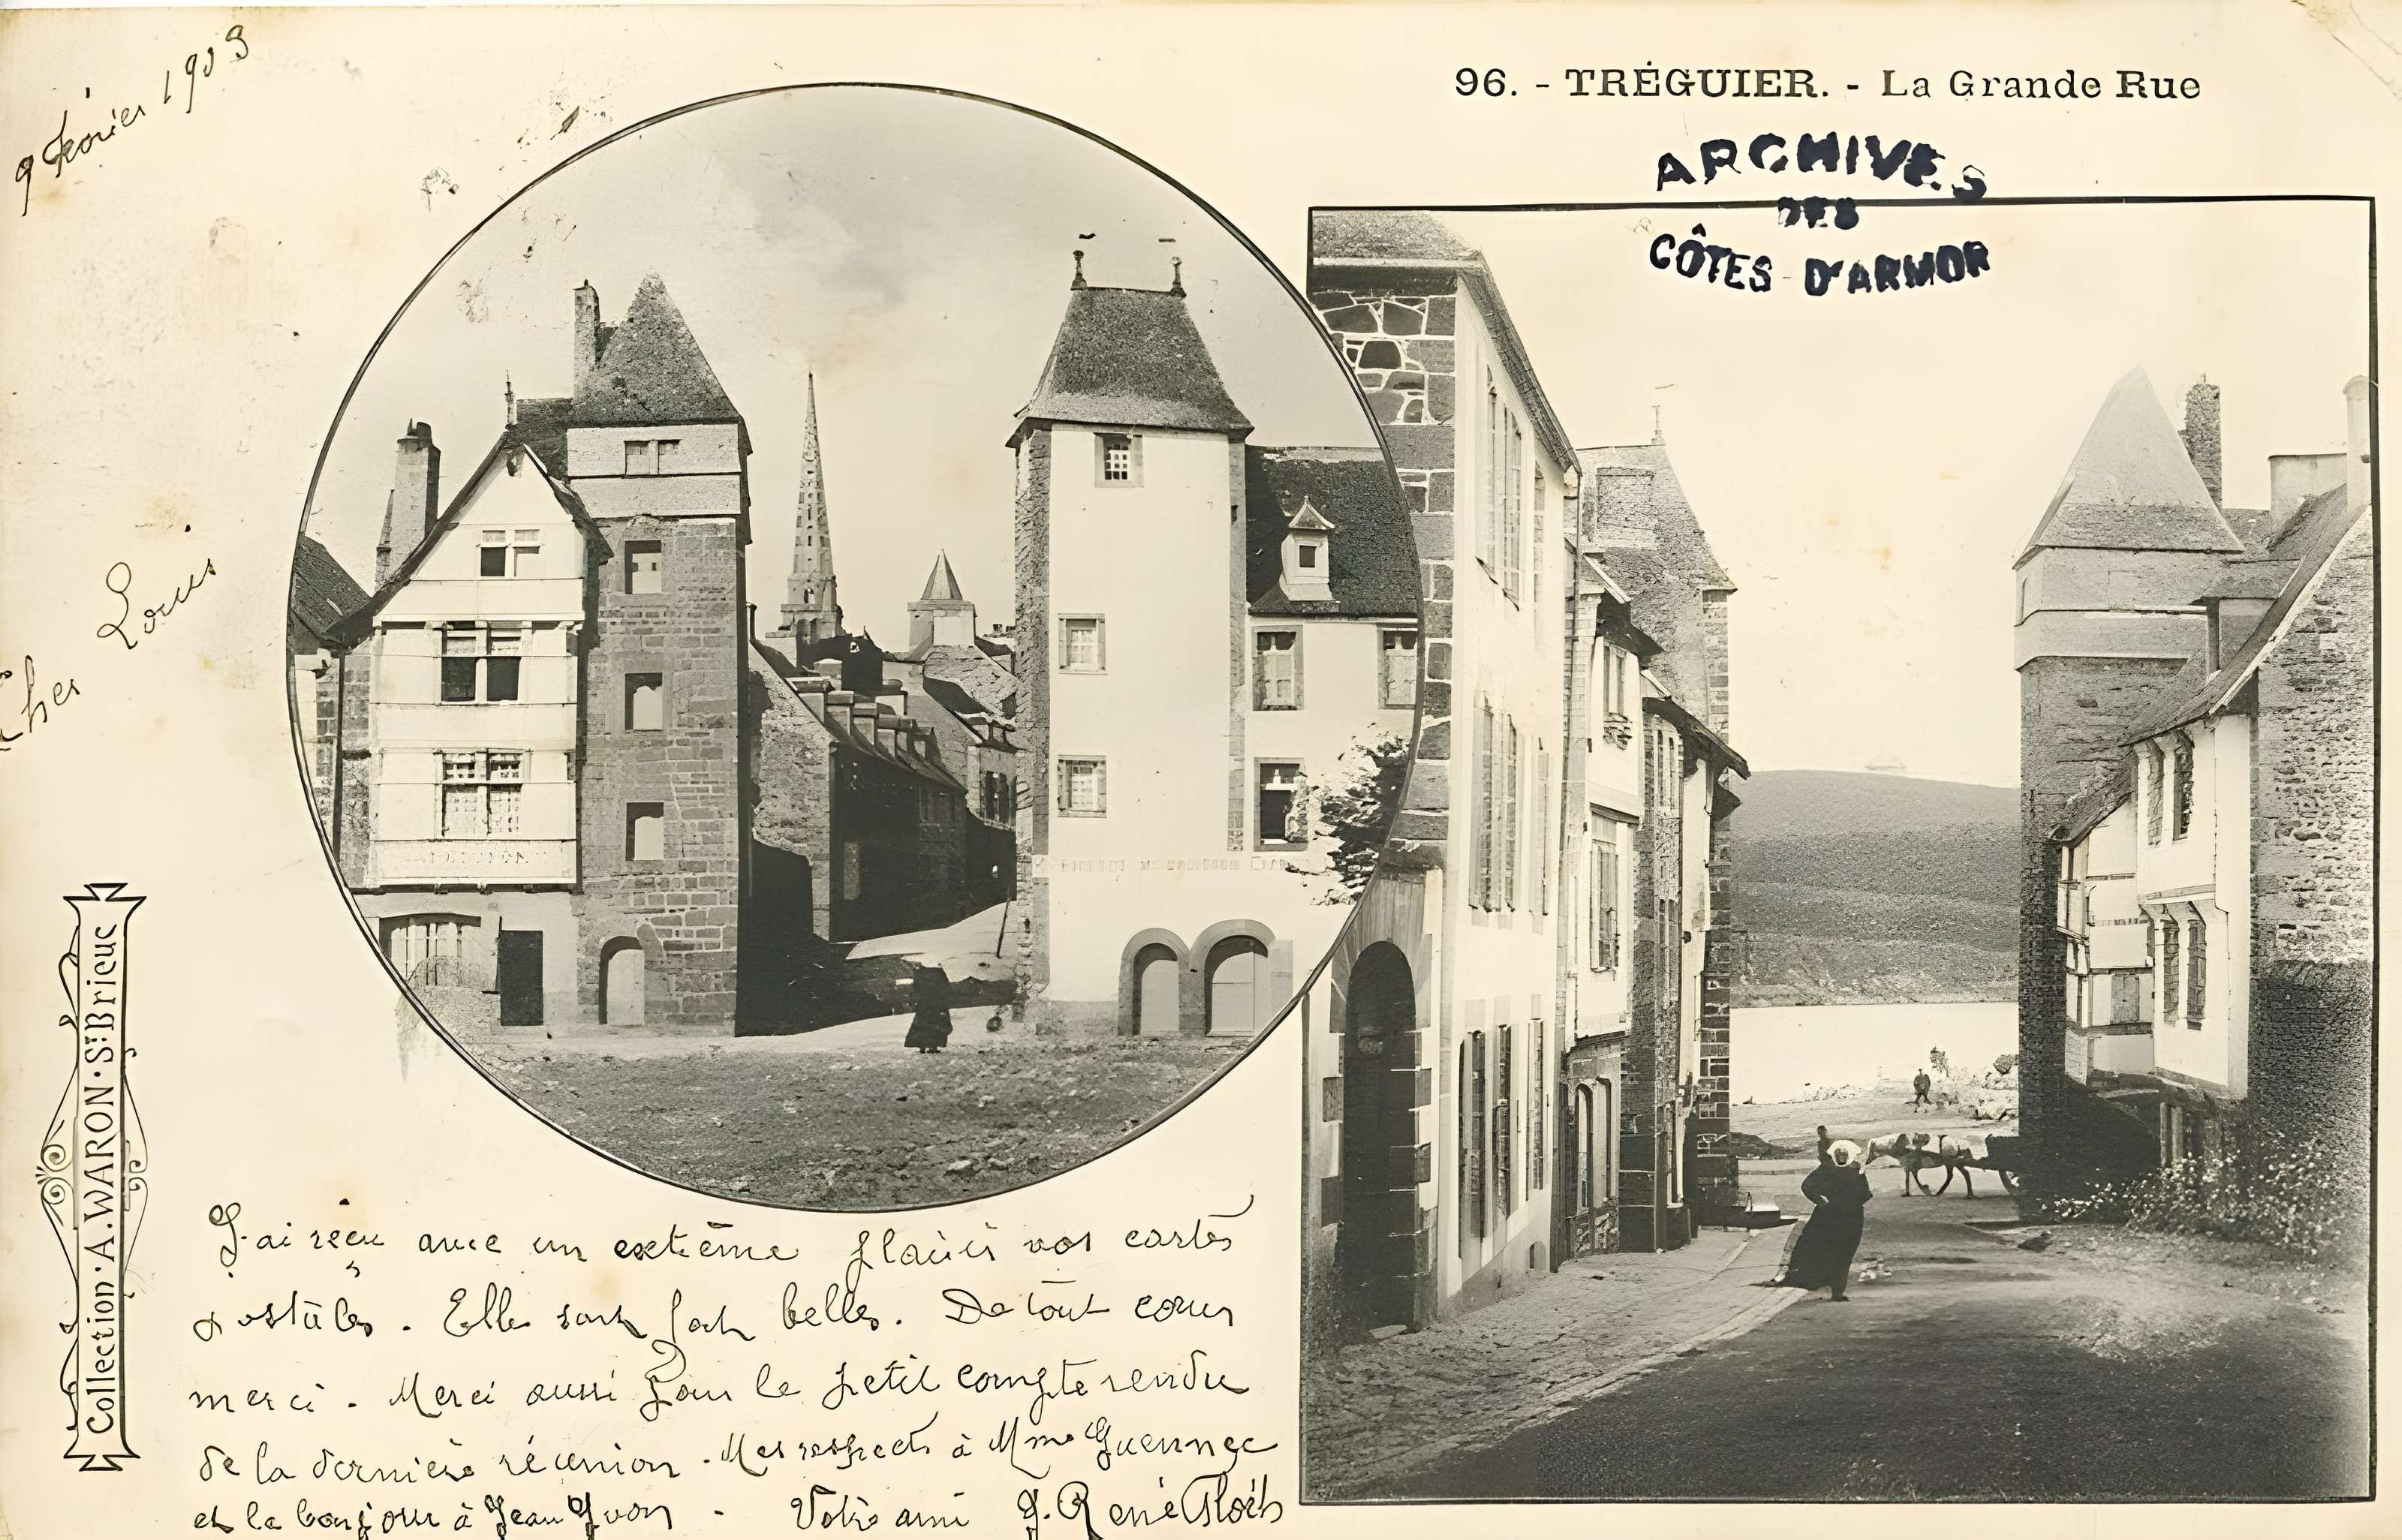 9 février 1903
96. - TRÉGUIER. - La Grande Rue
ARCHIVES
DES
CÔTES D'ARMOR
Louis
cher
Collection · A. WARON · St Brieuc
J'ai reçu avec un extrême plaisir vos cartes
postales. Elles sont fort belles. De tout cœur
merci. Merci aussi pour le petit compte rendu
de la dernière réunion. Mes respects à Mme Guennec
et le bonjour à Jean Yvon. Votre ami J. René